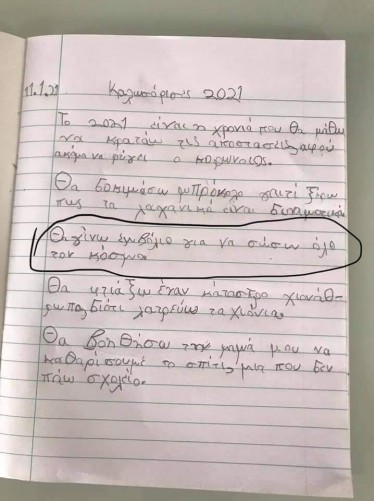 11.1.21 Καλωσόρισες 2021
Το 2021 είναι η χρονιά που θα μάθω
να κρατάω τις αποστάσεις αφού
ακόμα να φύγει ο κορωνοιός.
Θα δοκιμάσω μπρόκολο γιατί ξέρω
πως τα λαχανικά είναι δυναμωτικά
Θα γίνω εμβόλιο για να σώσω όλο
τον κόσμο.
Θα φτιάξω έναν κάτασπρο χιονάθ-
ρωπο διότι λατρεύω τα χιόνια.
Θα βοηθήσω την μαμά μου να
καθαρίσουμε το σπίτι, μια που δεν
πάω σχολείο.